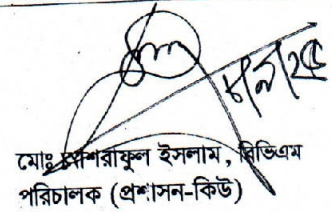 মোঃ আশরাফুল ইসলাম, বিভিএম
পরিচালক (প্রশাসন-কিউ)